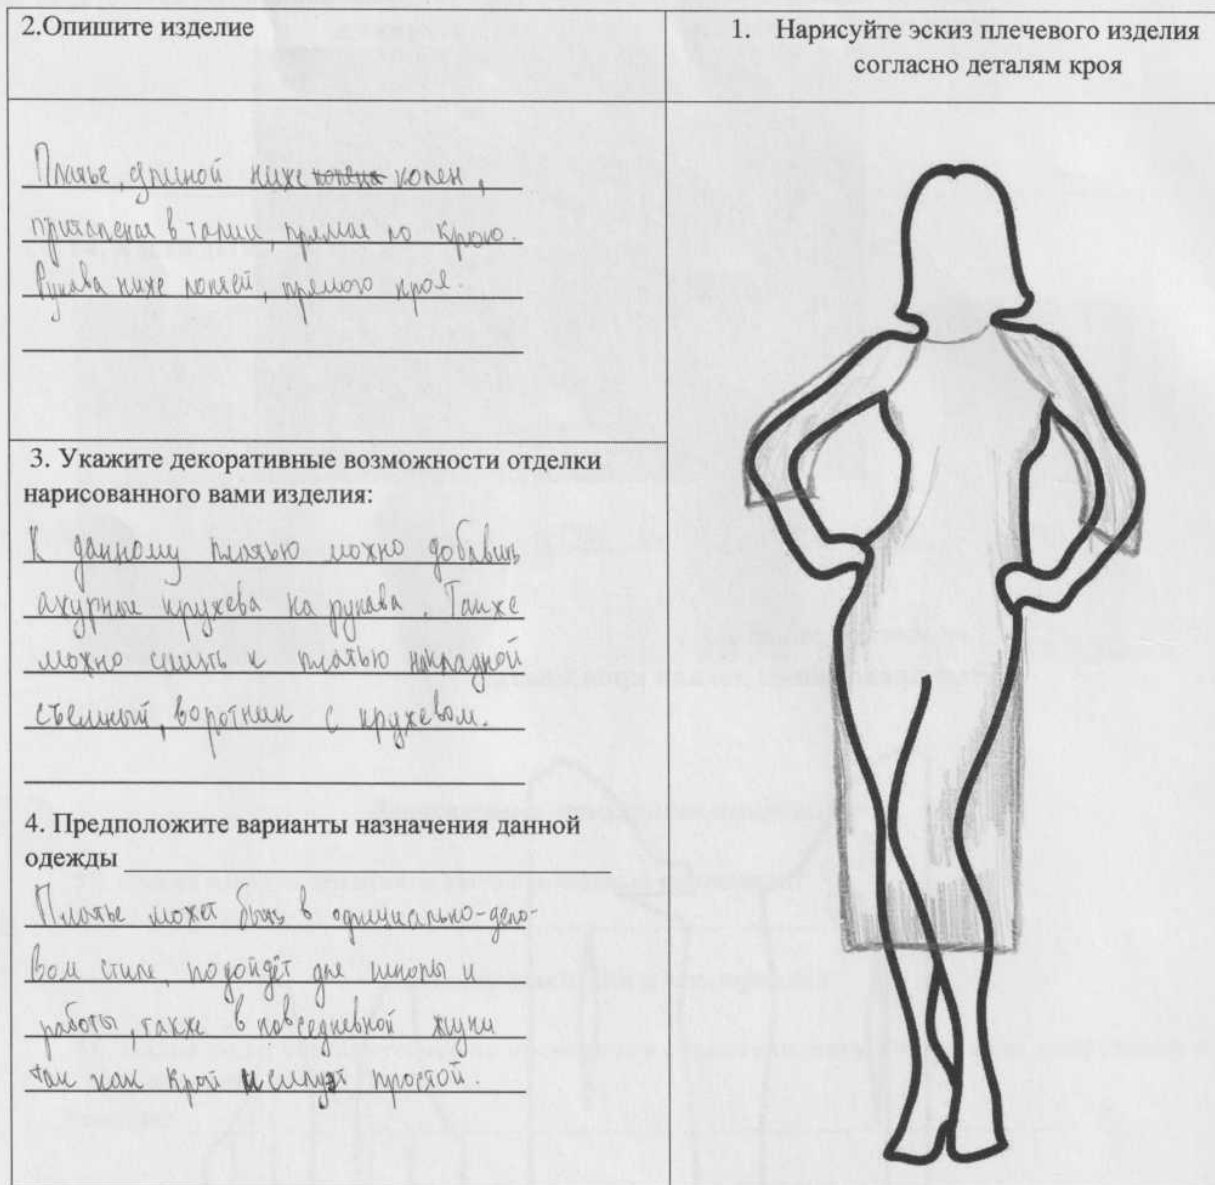 2.Опишите изделие
Платье, длиной ниже колена колен,
приталенная в талии, прямая по крою.
Рукава ниже локтей, прямого кроя.
3. Укажите декоративные возможности отделки
нарисованного вами изделия:
К данному платью можно добавить
ажурные кружева на рукава. Также
можно сшить к платью накладной
съемный, воротник с кружевом.
4. Предположите варианты назначения данной
одежды
Платье может быть в официально-дело-
вом стиле, подойдёт для школы и
работы, также в повседневной жизни
так как крой и силуэт простой.
1. Нарисуйте эскиз плечевого изделия
согласно деталям кроя